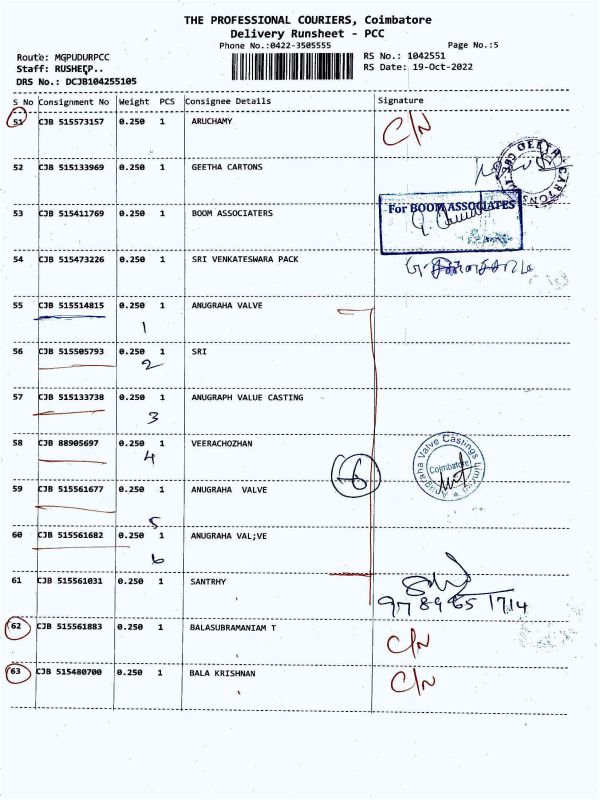 THE PROFESSIONAL COURIERS, Coimbatore
Delivery Runsheet - PCC
Phone No.:0422-3505555
Page No.:5
Route: MGPUDURPCC
RS No.: 1042551
Staff: RUSHEEP..
RS Date: 19-Oct-2022
DRS No.: DCJB104255105
S No Consignment No Weight PCS Consignee Details Signature
51 CJB 515573157 0.250 1 ARUCHAMY C/N
52 CJB 515133969 0.250 1 GEETHA CARTONS GEETHA CARTONS
53 CJB 515411769 0.250 1 BOOM ASSOCIATERS For BOOM ASSOCIATES
54 CJB 515473226 0.250 1 SRI VENKATESWARA PACK
55 CJB 515514815 0.250 1 ANUGRAHA VALVE
1
56 CJB 515505793 0.250 1 SRI
2
57 CJB 515133738 0.250 1 ANUGRAPH VALUE CASTING
3
58 CJB 88905697 0.250 1 VEERACHOZHAN
4
Anugraha Valve Castings Limited
Coimbatore
6
59 CJB 515561677 0.250 1 ANUGRAHA VALVE
5
60 CJB 515561682 0.250 1 ANUGRAHA VAL;VE
6
61 CJB 515561031 0.250 1 SANTRHY
9789651714
62 CJB 515561883 0.250 1 BALASUBRAMANIAM T C/N
63 CJB 515480700 0.250 1 BALA KRISHNAN C/N